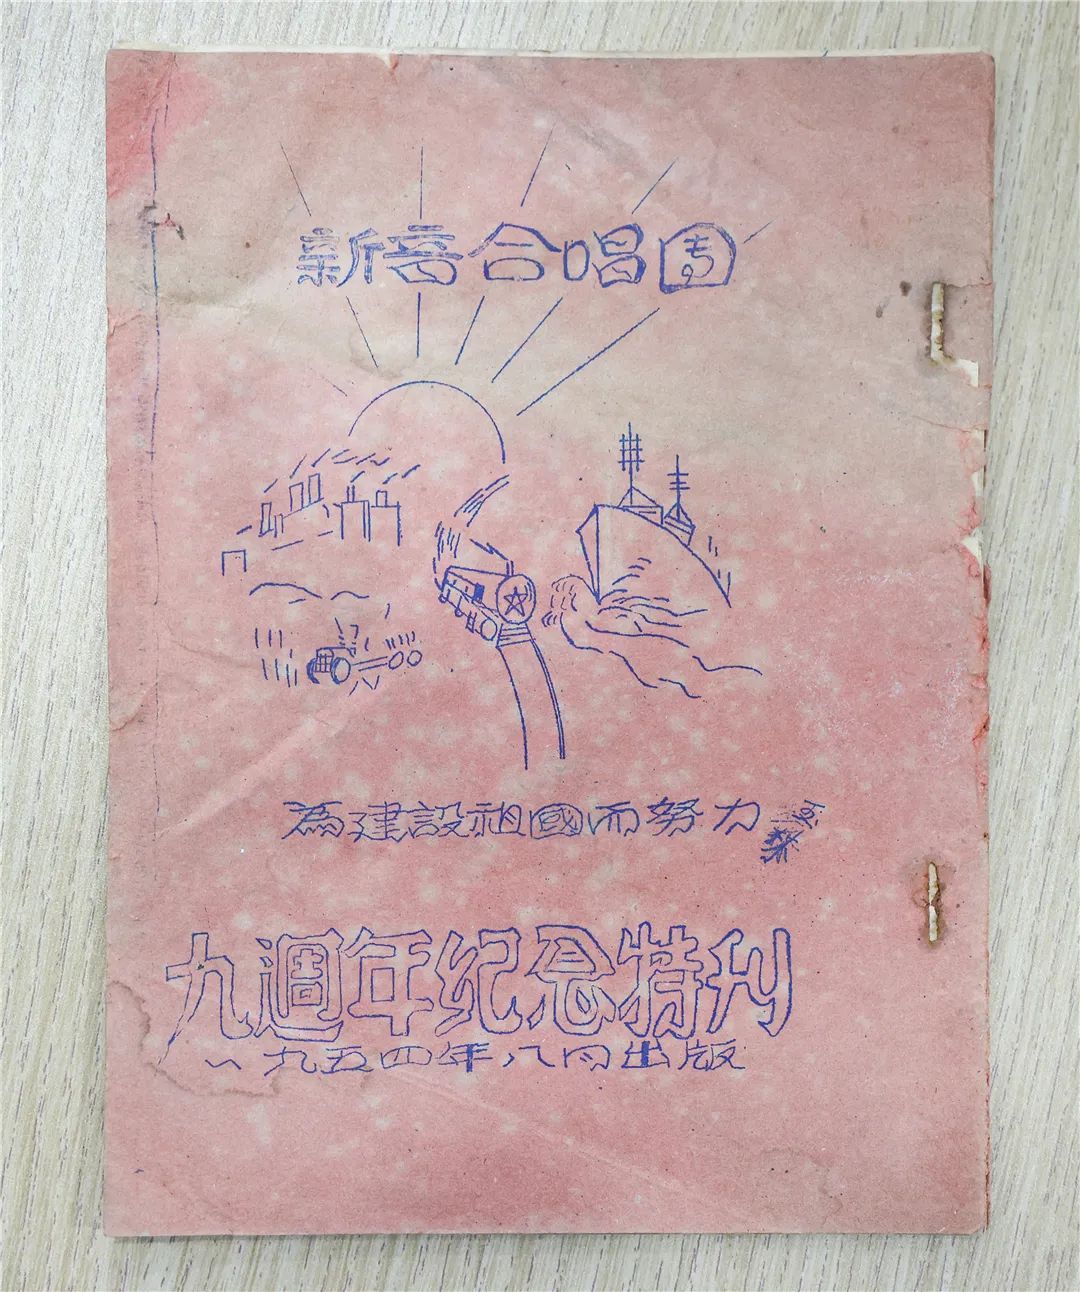 新音合唱团
為建設祖國而努力
九週年纪念特刊
一九五四年八月出版